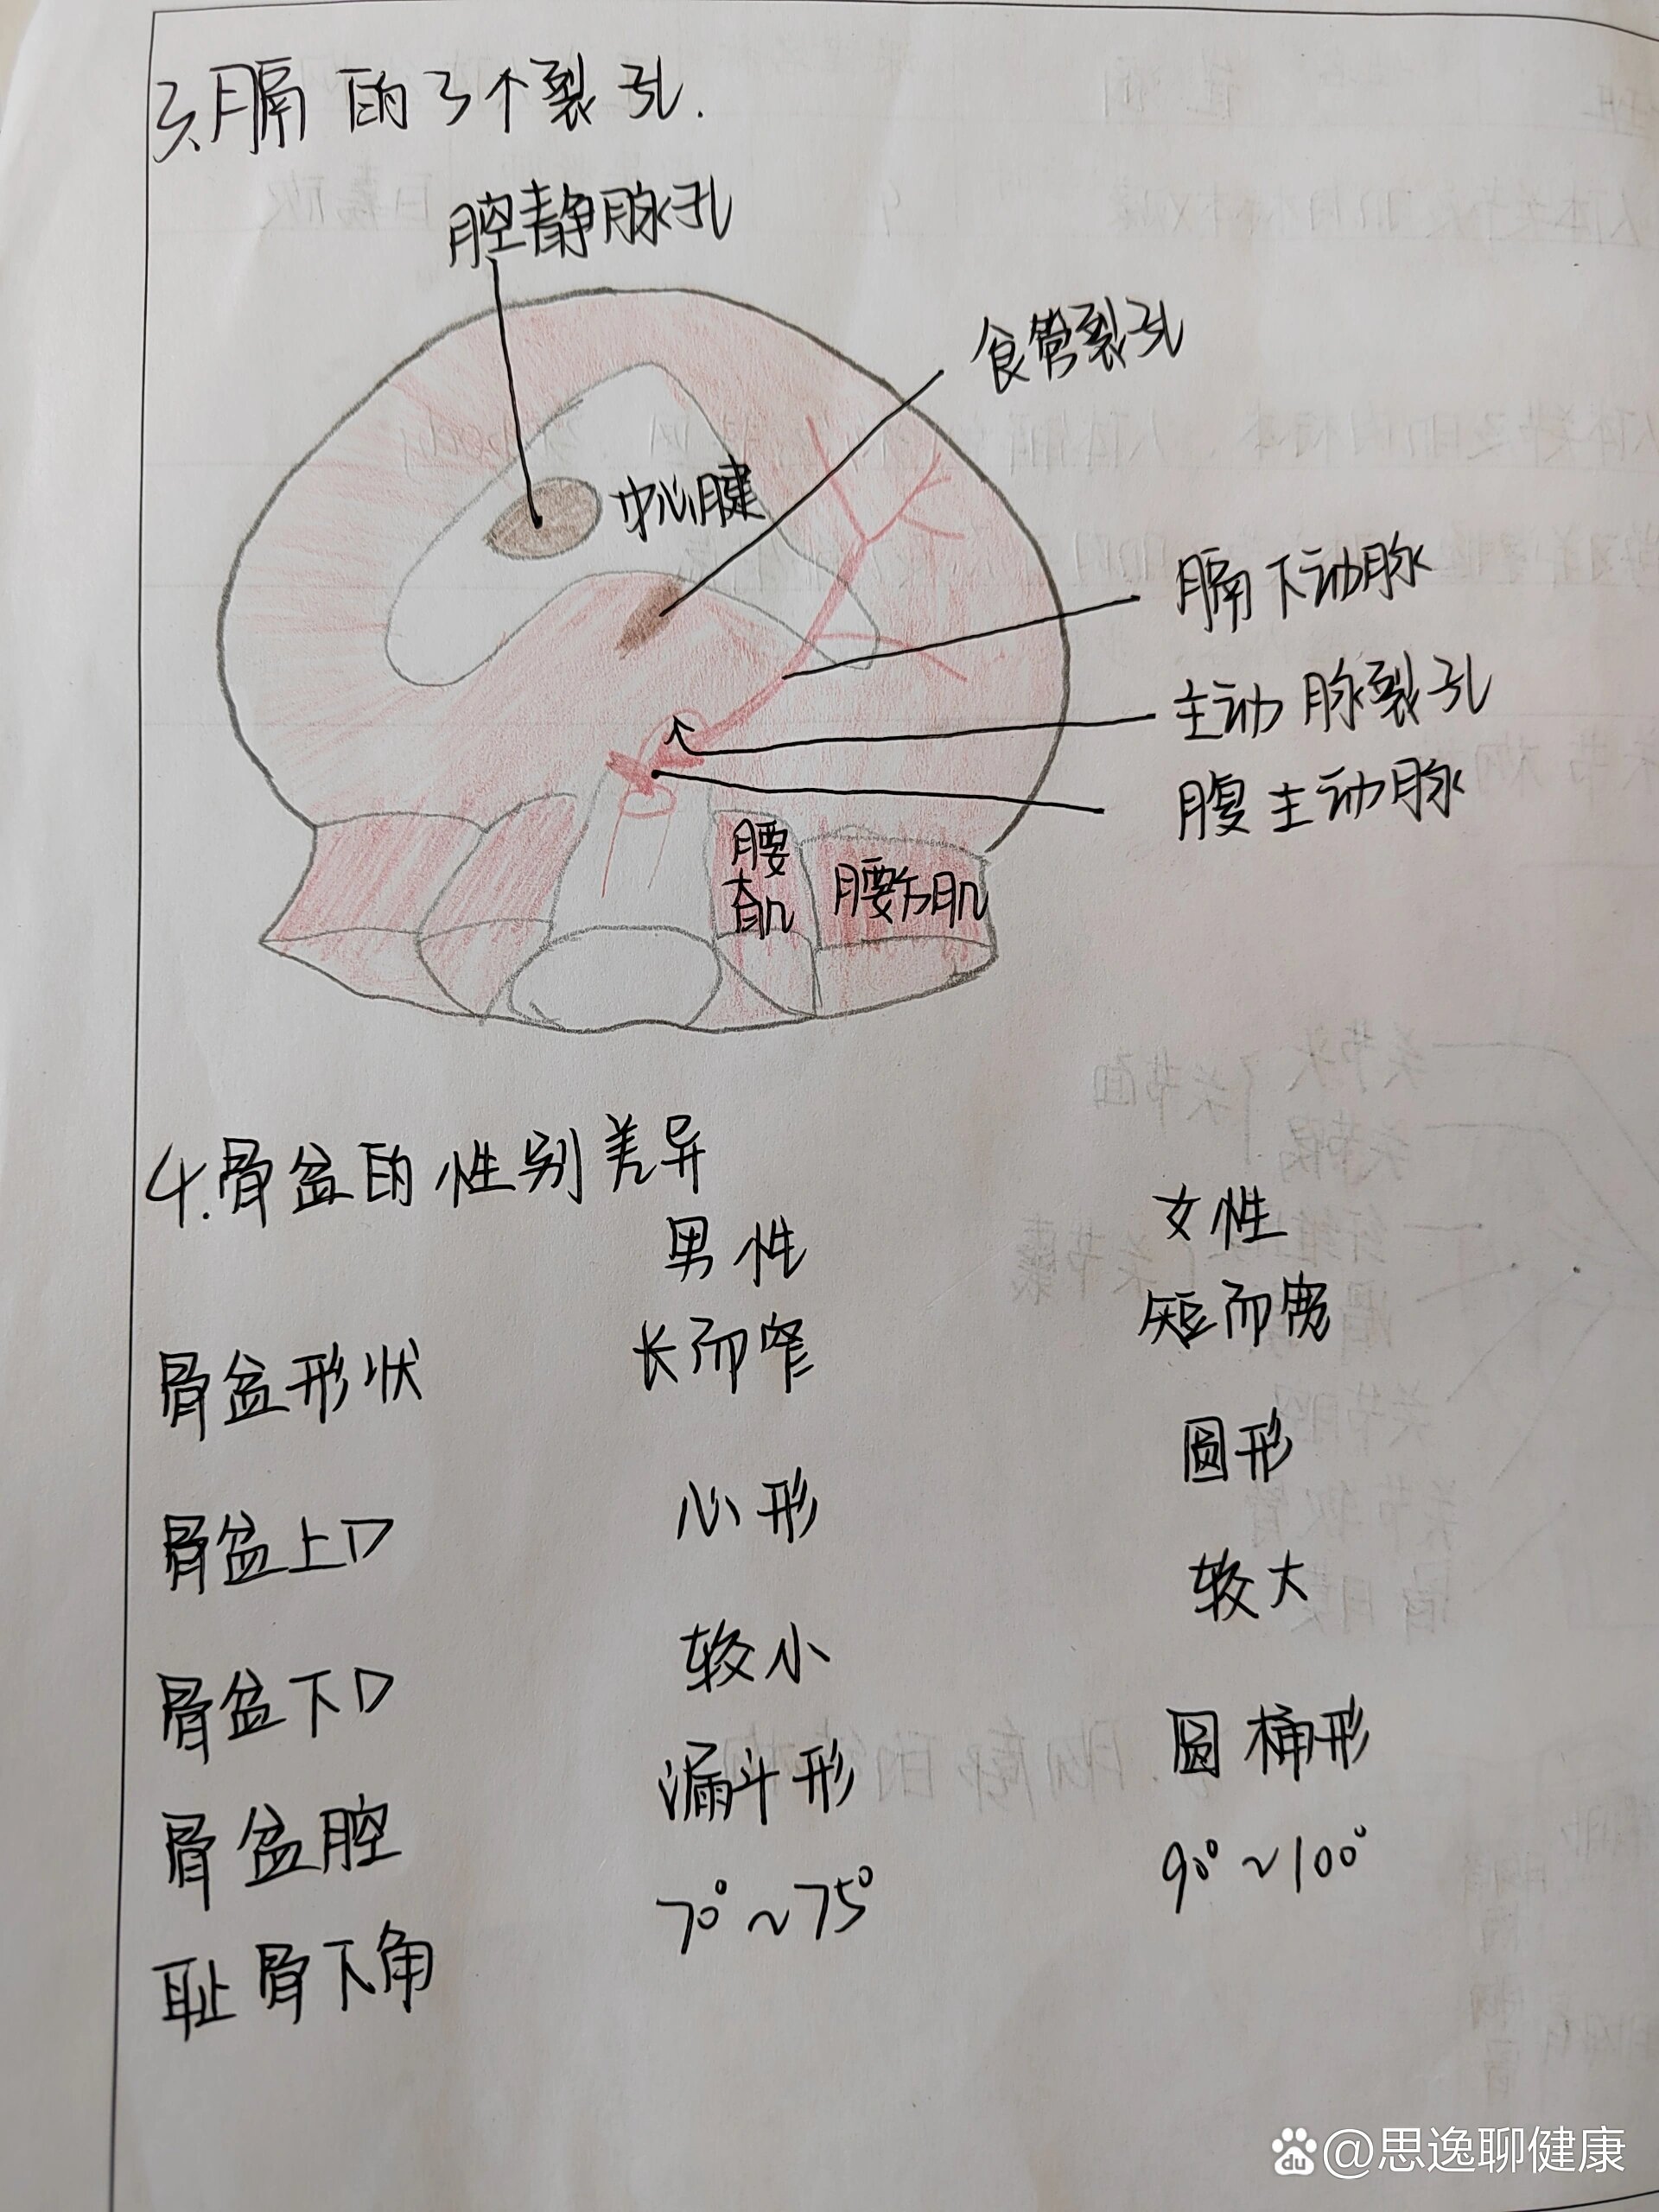 3.膈的3个裂孔.
腔静脉孔
食管裂孔
中心腱
膈下动脉
主动脉裂孔
腹主动脉
腰
大肌
腰方肌
4.骨盆的性别差异
男性 女性
骨盆形状 长而窄 短而宽
骨盆上口 心形 圆形
骨盆下口 较小 较大
骨盆腔 漏斗形 圆桶形
耻骨下角 70°~75° 90°~100°
du @思逸聊健康